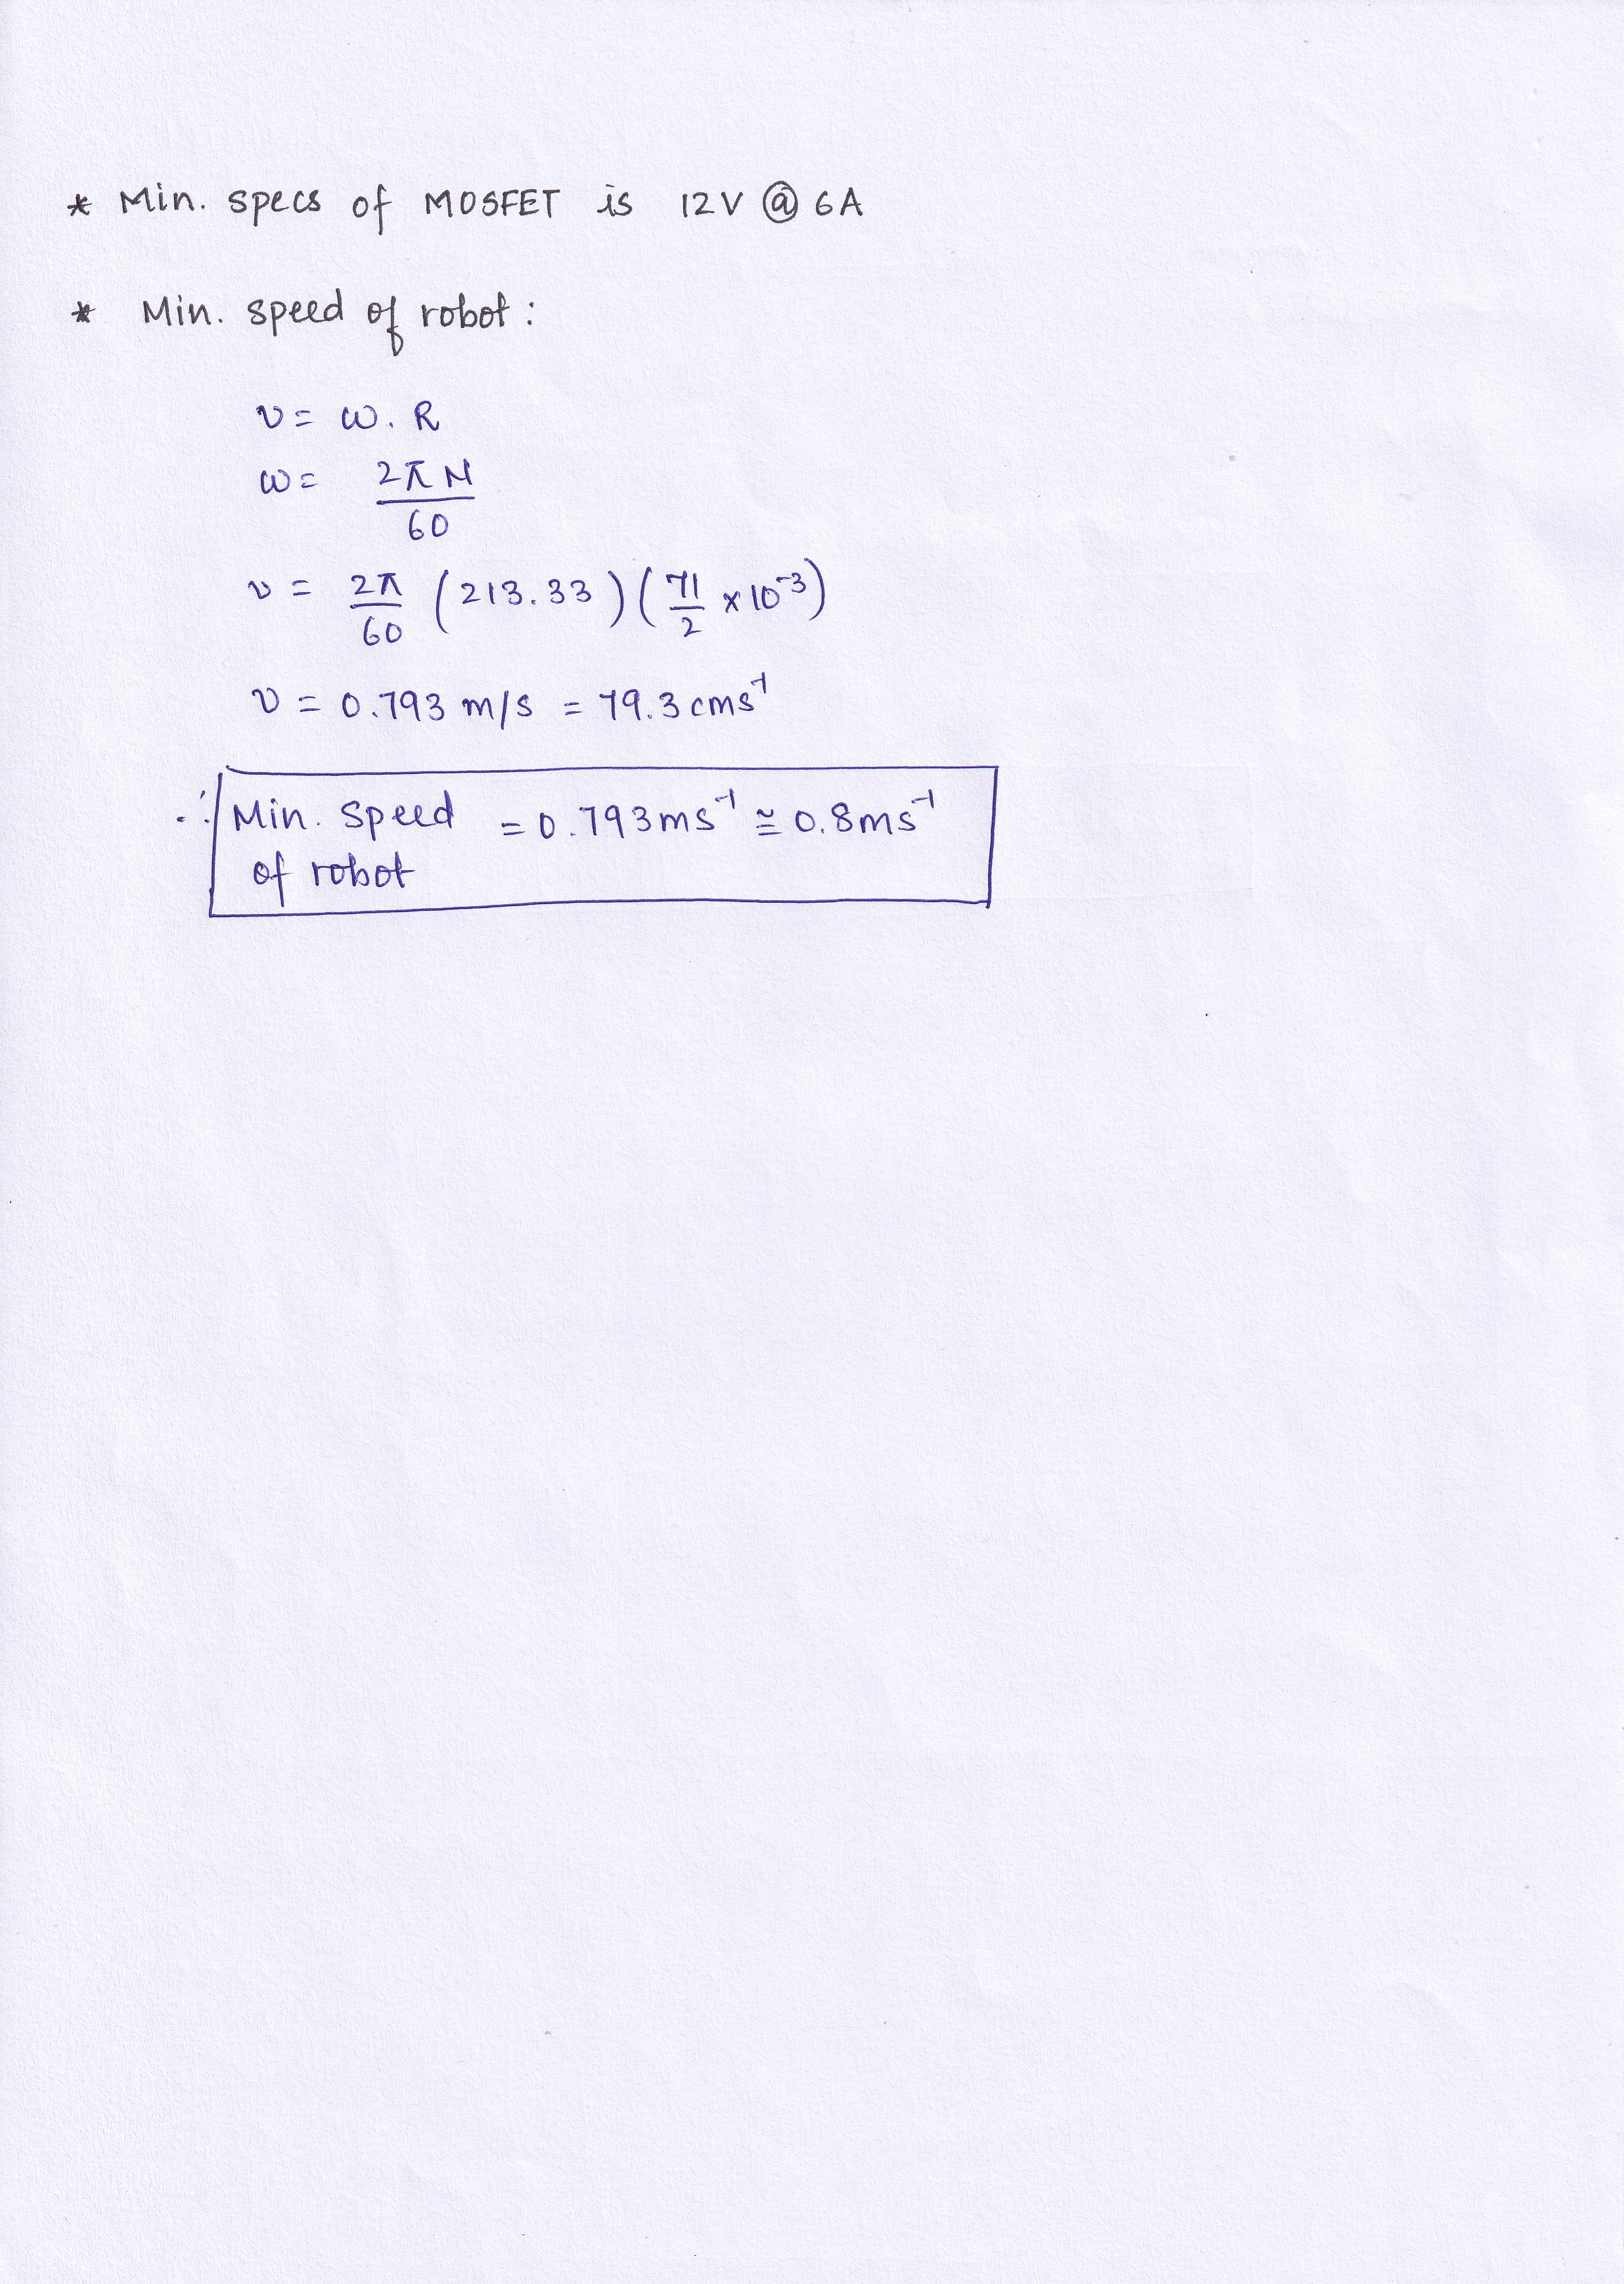 * Min. specs of MOSFET is 12V @ 6A
* Min. speed of robot :
v = ω . R
ω = 2πN / 60
v = 2π / 60 ( 213.33 ) ( 71 / 2 × 10⁻³ )
v = 0.793 m/s = 79.3 cms⁻¹
∴ Min. speed = 0.793 ms⁻¹ ≅ 0.8 ms⁻¹
of robot